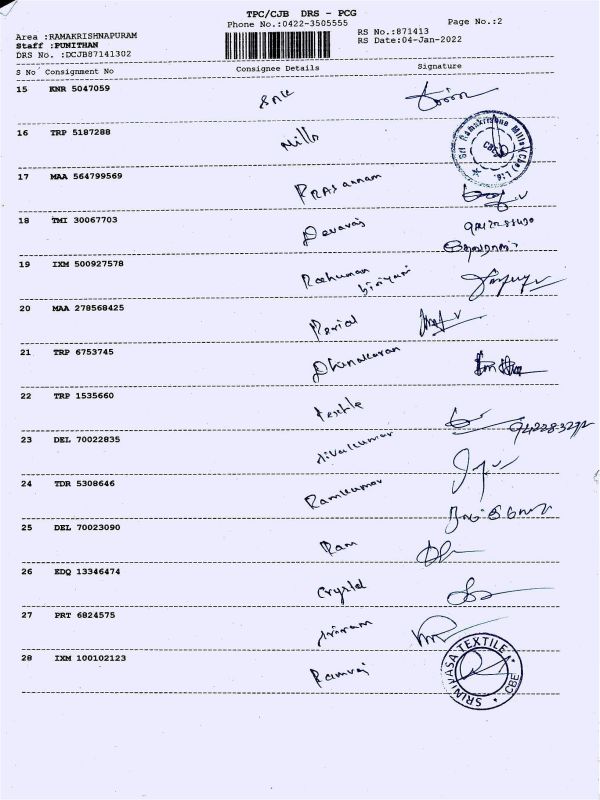 TPC/CJB DRS - PCG
Phone No.:0422-3505555
Page No.:2
Area :RAMAKRISHNAPURAM
Staff :PUNITHAN
DRS No. :DCJB87141302
RS No.:871413
RS Date:04-Jan-2022
S No Consignment No Consignee Details Signature
15 KNR 5047059
16 TRP 5187288 Mills
Sri Ramakrishna Mills (Cbe) Ltd.
CBE
17 MAA 564799569
18 TMI 30067703 Devaraj
19 IXM 500927578 Rahuman
biriyani
20 MAA 278568425
21 TRP 6753745 Dhinakaran
22 TRP 1535660 textile
23 DEL 70022835 sivakumar
24 TDR 5308646 Ramkumar
25 DEL 70023090 Ram
26 EDQ 13346474 Crystal
27 PRT 6824575 sriram
28 IXM 100102123 Ramraj
SRINIVASA TEXTILE
CBE